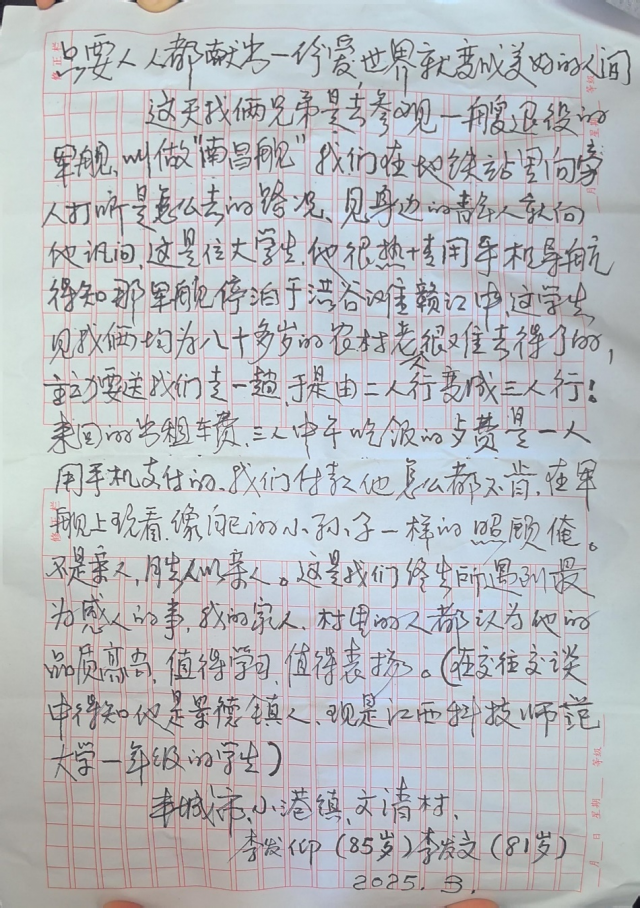 只要人人都献出一份爱,世界就变成美好的人间
这天我俩兄弟是去参观一艘退役的
军舰,叫做"南昌舰"我们在地铁站里向旁
人打听是怎么去的路况,见身边的青年人就向
他讯问,这是位大学生,他很热情用手机导航
得知那军舰停泊于 赣江中,这学生
见我俩均为八十多岁的农村老 很难去得了的,
主动要送我们走一趟,于是由二人行变成三人行!
来回的出租车费,三人中午吃饭的歺费是一人
用手机支付的,我们付款他怎么都不肯,在军
舰上观看,像自己的小孙子一样的照顾俺。
不是亲人,胜似亲人。这是我们终生所遇到最
为感人的事,我的家人,村里的人都认为他的
品质高尚,值得学习,值得表扬。(在交往交谈
中得知他是景德镇人,现是江西科技师范
大学一年级的学生)
丰城市,小港镇,文清村,
李发仰(85岁)李发文(81岁)
2025.3.
修正栏
等级
月 日 星期
修正栏
月 日 星期 等级